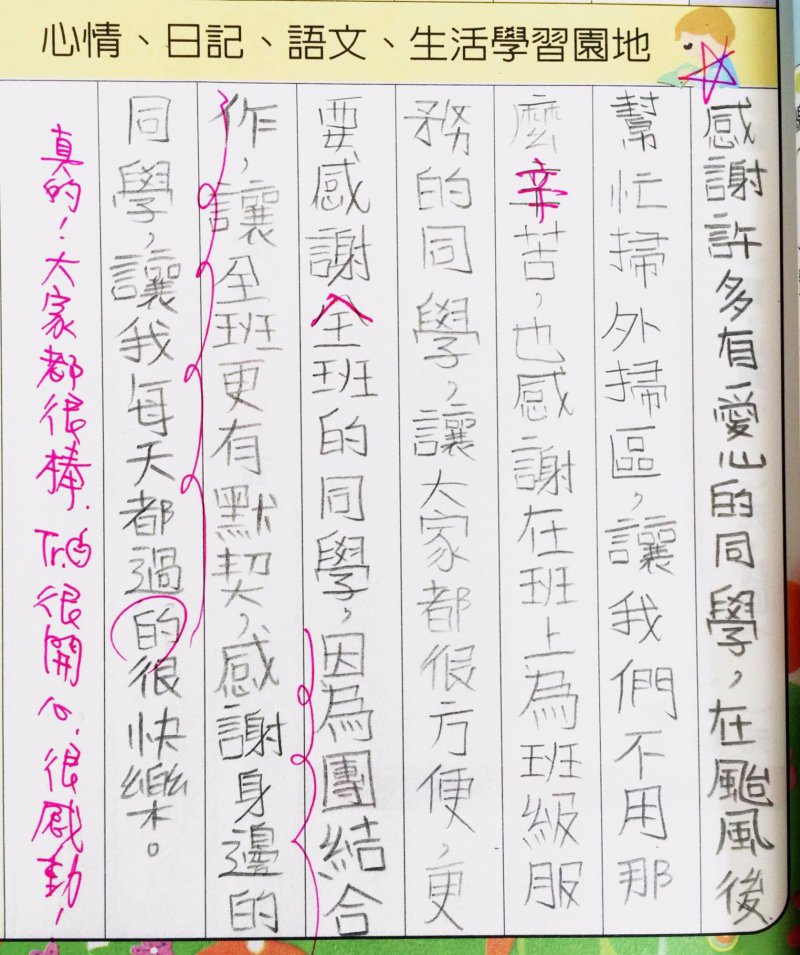 心情、日記、語文、生活學習園地
感謝許多有愛心的同學，在颱風後
幫忙掃外掃區，讓我們不用那
麼辛苦，也感謝在班上為班級服
務的同學，讓大家都很方便，更
要感謝全班的同學，因為團結合
作，讓全班更有默契，感謝身邊的
同學，讓我每天都過的很快樂。
真的！大家都很棒．Tr.也很開心．很感動！